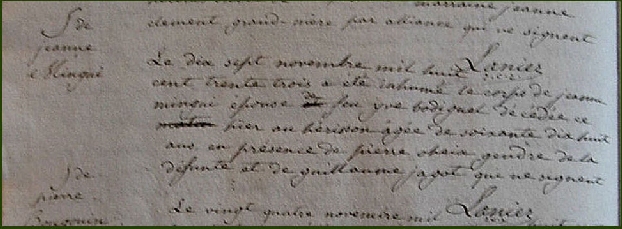 marraine jeanne
clement grand-mère par alliance qui ne signent
S de
jeanne
Mingui
Lanier
Le dix sept novembre mil huit
cent trente trois a été inhumé le corps de jeanne
mingui epouse de feu yve bodiguel décédée ce
matin hier au hérisson agée de soixante dix huit
ans en présence de pierre gendre de la
défunte et de guillaume jagot qui ne signent
S de
pierre
Lanier
Le vingt quatre novembre mil